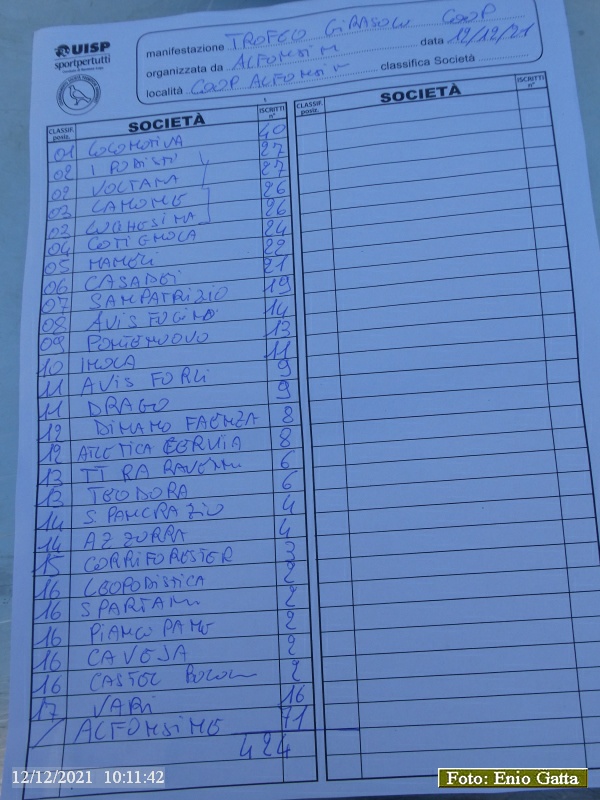 UISP
sportpertutti
manifestazione TROFEO GIRASOLI COOP
organizzata da ALFONSIN data 12/12/21
località COOP ALFONSIN classifica Società
CLASSIF. posiz. SOCIETÀ ISCRITTI n° CLASSIF. posiz. SOCIETÀ ISCRITTI n°
01 LOCOMOTIVA 40
02 I PODISTI 27
02 VOLTANA 27
03 LAMONE 26
03 LUGHESINA 26
04 COTIGNOLA 24
05 MAMELI 22
06 CASADEI 21
07 SAMPATRIZIO 19
08 AVIS FUSIGN 14
09 PONTENUOVO 13
10 IMOLA 11
11 AVIS FORLI 9
11 DRAGO 9
12 DINAMO FAENZA 8
12 ATLETICA CERVIA 8
13 TT RA RAVENN 6
13 TEODORA 6
14 S. PANCRAZIO 4
14 AZZURRA 4
15 CORRIFORESTER 3
16 LEOPODISTICA 2
16 SPARTAN 2
16 PIANGIPANE 2
16 CAVEJA 2
16 CASTEL BOLOGN 2
17 VARI 16
/ ALFONSINE 71
424
12/12/2021 10:11:42
Foto: Enio Gatta